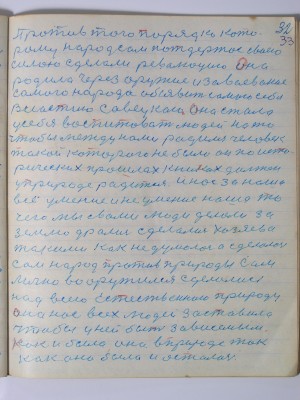 32
33
Против того порядка кото-
рому народ сам потдержос свою
силою сделали революцию. Она
родила через оружие и завоевание
самого народа объявить само себя
властию Советскою, она стала
у себя воспитовать людей на то
чтобы между нами родился человек
такой которого не было он по исто-
рических прошлах книгах должен
у природе родится. И нас за наше
всё умение и не умение наше то
чего мы с вами люди деньги за
землю дрались сделались хозяева
такими как не думолось сделалось
сам народ против природы сам
лично вооружился сделался
над всею естественною природу
она нас всех людей заставила
чтобы у ней быть зависимым.
Как и было она в природе так
как она была и осталась